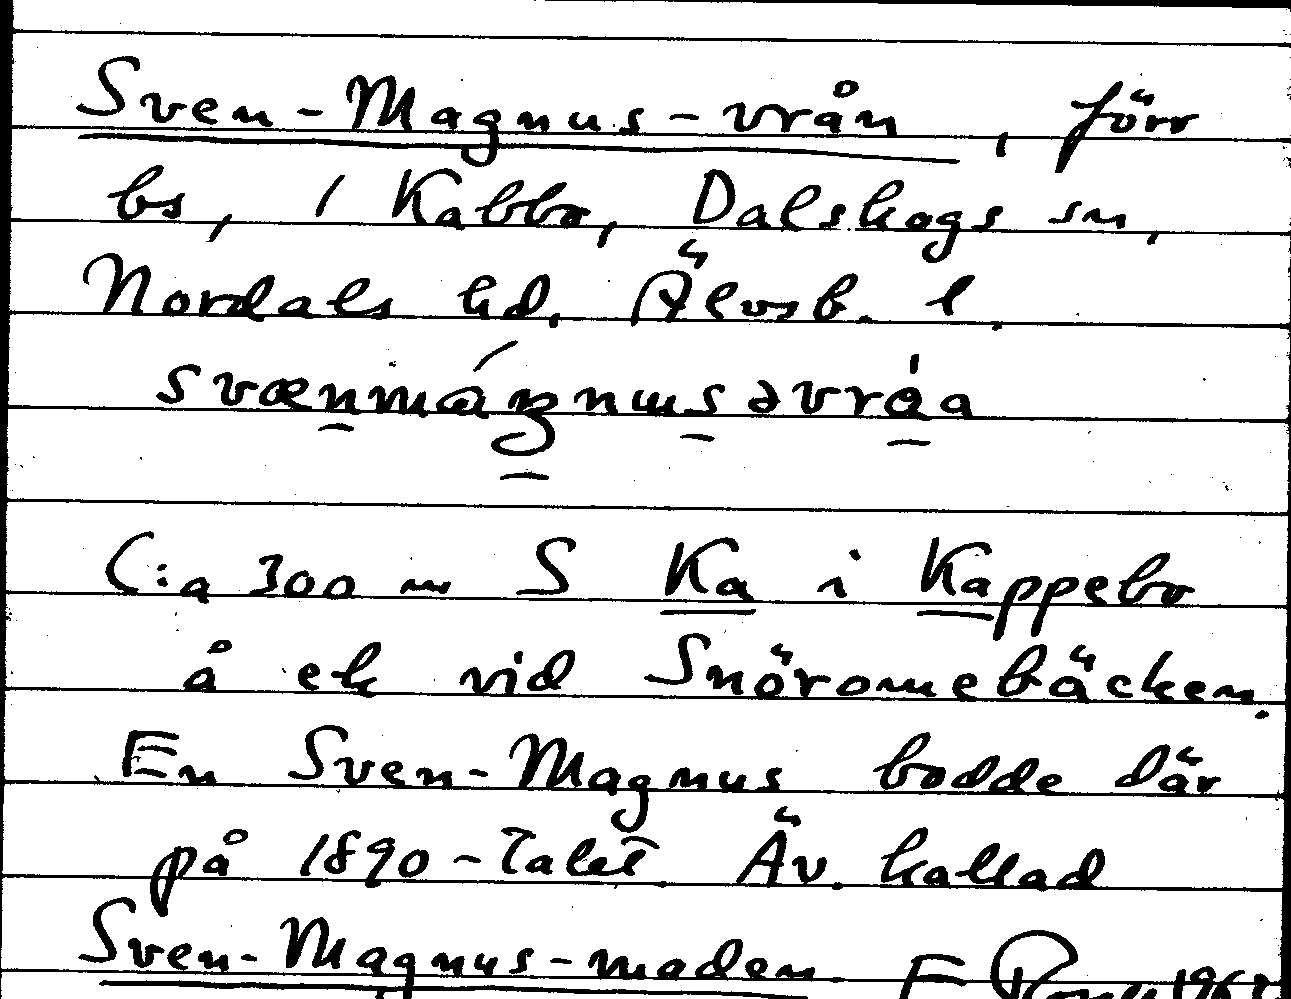 Sven-Magnus-vrån, förr
bs, 1 Kabbo, Dalskogs sn,
Nordals hd. Älvsb. l.
C:a 300 m S Ka i Kappebo
å ek vid Snöromebäcken.
En Sven-Magnus bodde där
på 1890-talet. Äv. kallad
Sven-Magnus-maden.